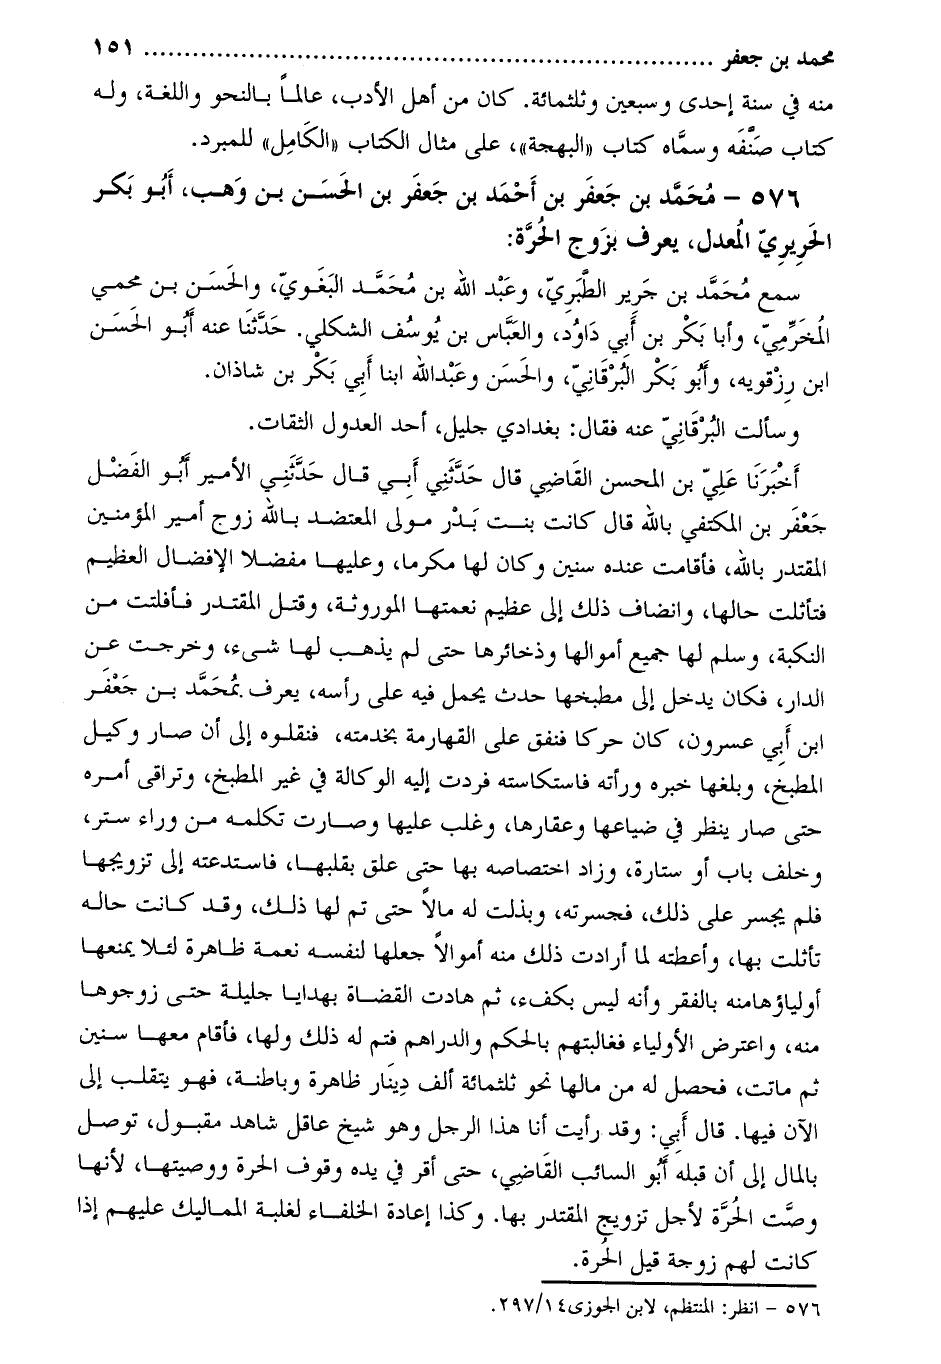 محمد بن جعفر ........................................................................ ١٥١
منه في سنة إحدى وسبعين وثلثمائة. كان من أهل الأدب، عالماً بالنحو واللغة، وله
كتاب صَنَّفَه وسمَّاه كتاب «البهجة»، على مثال الكتاب «الكَامِل» للمبرد.
٥٧٦ - مُحَمَّد بن جَعفَر بن أَحْمَد بن جَعفَر بن الحَسَـن بن وَهـب، أَبُـو بَكـر
الحَرِيرِيّ المُعدل، يعرف بزَوج الحُرَّة:
سمع مُحَمَّد بن جَرِير الطَّبَرِيّ، وعَبْد الله بن مُحَمَّـد البَغَـوِيّ، والحَسَـن بـن محمـي
المُخَرِّمِيّ، وأبا بَكْر بن أَبي دَاوُد، والعَبَّاس بن يُوسُف الشكلي. حَدَّثَنَا عنه أَبُـو الحَسَن
ابن رِزْقويه، وأَبُو بَكْر البُرْقَانِيّ، والحَسَن وعَبْدالله ابنا أَبي بَكْر بن شاذان.
وسألت البُرْقَانِيّ عنه فقال: بغدادي جليل، أحد العدول الثقات.
أَخْبَرَنَا عَلِيّ بن المحسن القَاضِي قال حَدَّثَنِي أَبـي قـال حَدَّثَنِـي الأمـير أَبُـو الفَضْـل
جَعْفَر بن المكتفي بالله قال كانت بنـت بَـدْر مـولى المعتضـد بـالله زوج أمـير المؤمنـين
المقتدر بالله، فأقامت عنده سنين وكان لها مكرما، وعليهـا مفضـلا الإفضال العظيـم
فتأثلت حالها، وانضاف ذلك إلى عظيم نعمتهـا الموروثـة، وقتـل المقتـدر فـأفلتت مـن
النكبة، وسلم لها جميع أموالها وذخائرها حتى لم يذهـب لهـا شـيء، وخرجـت عـن
الدار، فكان يدخل إلى مطبخها حدث يحمل فيه على رأسه، يعرف بمُحَمَّد بـن جَعْفَـر
ابن أَبي عسرون، كان حركا فنفق على القهارمة بخدمته، فنقلـوه إلى أن صـار وكيـل
المطبخ، وبلغها خبره ورأته فاستكاسته فردت إليه الوكالة في غير المطبخ، وتراقى أمـره
حتى صار ينظر في ضياعها وعقارها، وغلب عليهـا وصـارت تكلمـه مـن وراء سـتر،
وخلف باب أو ستارة، وزاد اختصاصه بها حتى علق بقلبهـا، فاسـتدعته إلى تزويجهـا
فلم يجسر على ذلك، فجسرته، وبذلت له مالاً حتى تم لها ذلـك، وقـد كـانت حالـه
تأثلت بها، وأعطته لما أرادت ذلك منه أموالاً جعلها لنفسـه نعمـة ظـاهرة لئـلا يمنعهـا
أولياؤهامنه بالفقر وأنه ليس بكفء، ثم هادت القضاة بهدايا جليلة حتـى زوجوهـا
منه، واعترض الأولياء فغالبتهم بالحكم والدراهم فتم له ذلك ولها، فأقام معهـا سـنين
ثم ماتت، فحصل له من مالها نحو ثلثمائة ألف دِينَار ظاهرة وباطنـة، فهـو يتقلـب إلى
الآن فيها. قال أَبي: وقد رأيت أنا هذا الرجل وهو شيخ عاقل شاهد مقبـول، توصـل
بالمال إلى أن قبله أَبُو السائب القَاضِي، حتى أقر في يده وقوف الحرة ووصيتهـا، لأنهـا
وصَّت الحُرَّة لأجل تزويج المقتدر بها. وكذا إعادة الخلفـاء لغلبة المماليك عليهم إذا
كانت لهم زوجة قيل الحُرة.
٥٧٦ - انظر: المنتظم، لابن الجوزى٢٩٧/١٤.